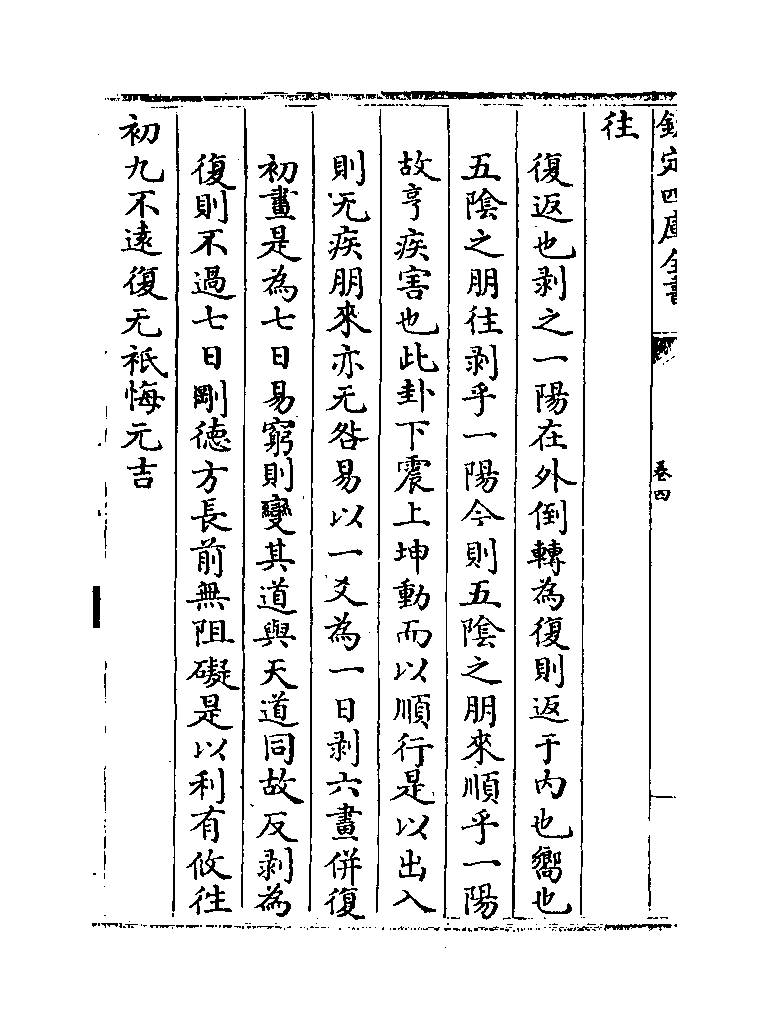 欽定四庫全書
卷四
往
復返也剥之一陽在外倒轉為復則返于内也嚮也
五陰之朋往剥乎一陽今則五陰之朋來順乎一陽
故亨疾害也此卦下震上坤動而以順行是以出入
則无疾朋來亦无咎易以一爻為一日剥六畫併復
初畫是為七日易窮則變其道與天道同故反剥為
復則不過七日剛徳方長前無阻礙是以利有攸往
初九不逺復无袛悔元吉